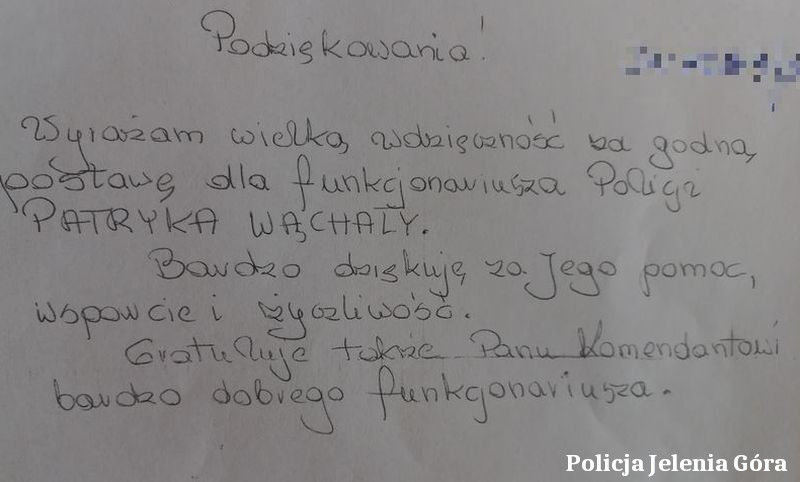 Podziękowania!
Wyrażam wielką wdzięczność za godną
postawę dla funkcjonariusza Policji
PATRYKA WĄCHAŁY.
Bardzo dziękuję za Jego pomoc,
wspowcie i życzliwość.
Gratuluje także Panu Komendantowi
bardzo dobrego funkcjonariusza.
Policja Jelenia Góra